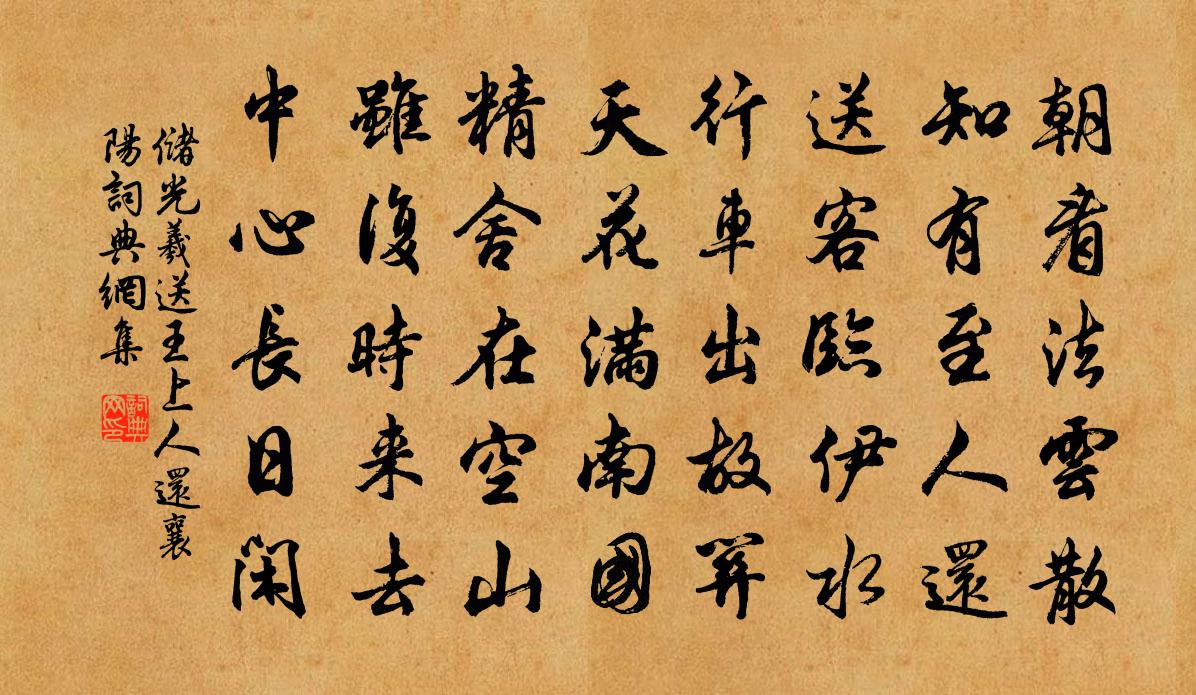 朝看法雲散
知有至人還
送客臨伊水
行車出故關
天花滿南國
精舍在空山
雖復時来去
中心長日閑
儲光羲送王上人還襄
陽詞典網集
詞典
网印